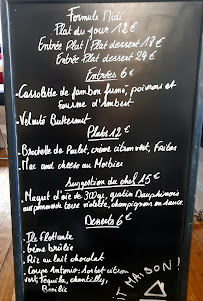 Formule Midi
Plat du jour 12 €
Entrée Plat / Plat dessert 18 €
Entrée Plat dessert 24 €
Entrées 6 €
- Cassolette de jambon fumé, poireaux et
fourme d'Ambert
- Velouté Butternut
Plats 12 €
- Brochette de Poulet, crème citron vert, Frites
- Mac and cheese au Morbier
Suggestion du chef 15 €
- Magret d'oie de 300gr, gratin Dauphinois
aux pommes de terre violette, champignons en sauce
Desserts 6 €
- Ile Flottante
- Crème brulée
- Riz au lait chocolat
- Coupe Antomio: sorbet citron
vert, Tequila, chantilly,
Basilic
IT HA.BON!